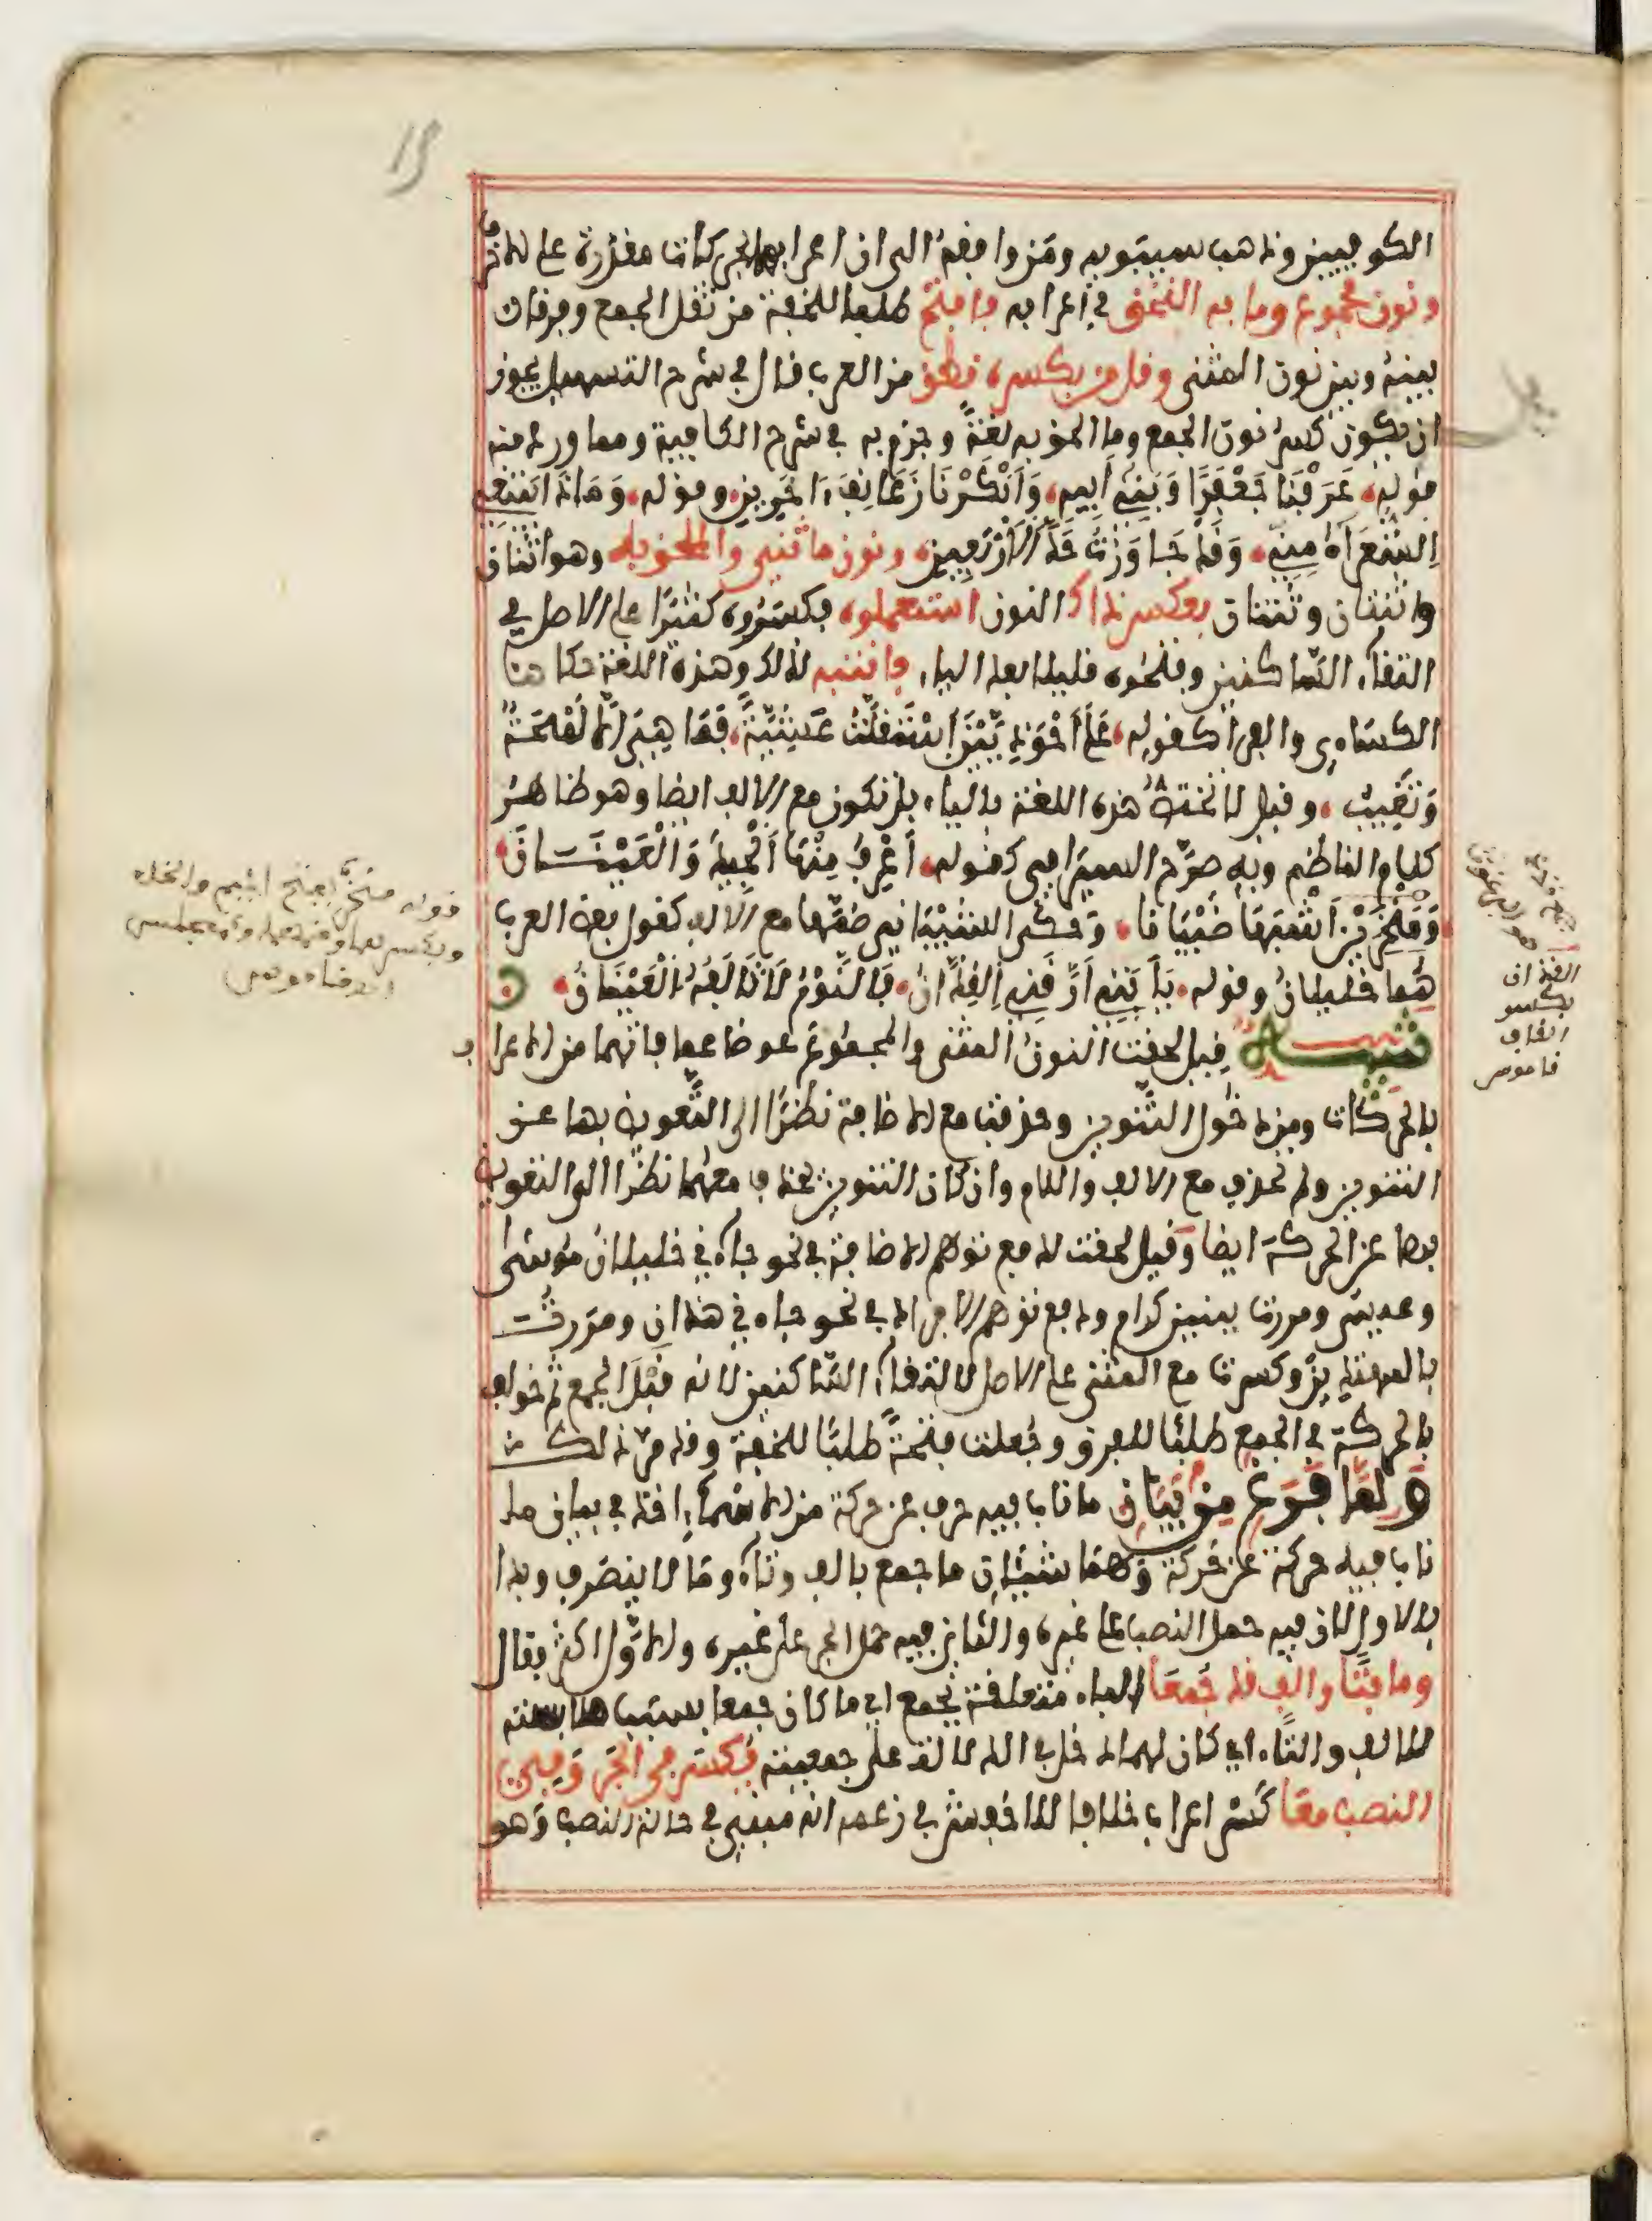 الكوفيين وذهب سيبويه ومن وافقه الى ان اعرابهما بحركات مقدرة على الاحرف
ونون مجموع وما به التحق في اعرابه فافتح طلبا للخفة من ثقل الجمع وفرقا
بينه وبين نون المثنى وقل من بكسره نطق من العرب قال في شرح التسهيل يجوز
ان يكون كسر نون الجمع وما الحق به لغةً وجزم به في شرح الكافية ومما ورد منه
قوله عَرَفْنَا جَعْفَرًا وَبَنِي أَبِيهِ وَأَنْكَرْنَا زَعَانِفَ آخَرِينِ وقوله وَمَاذَا تبتغي
الشُّعَرَاءُ مِنِّي وَقَدْ جَاوَزْتُ حَدَّ الأَرْبَعِينِ ونون ما ثني والملحق به وهو اثنان
واثنتان وثنتان بعكس ذاك النون استعملوه فكسروه كثيرًا على الاصل في
التقاء السّاكنين وفتحوه قليلا بعد الياء فانتبه لذلك وهذه اللغة حكاها
الكساءي والفرا كقوله عَلَى أَحْوَذِيَّيْنَ اسْتَقَلَّتْ عَشِيَّةً فَمَا هِيَ إِلَّا لَمْحَةٌ
وَتَغِيبُ وقيل لا تختص هذه اللغة بالياء بل تكون مع الالف ايضا وهو ظاهر
كلام الناظم وبه صرّح السيرافي كقوله أَعْرِفُ مِنْهَا الْجِيدَ وَالْعَيْنَانَ
وَمَنْخِرَيْنِ أَشْبَهَا ظَبْيَانَا وحكى الشيباني ضمّها مع الالف كقول بعض العرب
هُمَا خليلانُ وقوله يَا أَبَتِي أَرَّقَنِي الْقِذَّانُ فَالنَّوْمُ لَا تَأْلَفُهُ الْعَيْنَانُ
تنبيه قيل لحقت النون المثنى والمجموع عوضا عما فاتهما من الاعراب
بالحركات ومن دخول التّنوين وحذفت مع الاضافة نظرًا الى التّعويض بها عن
التنوين ولم تحذف مع الالف واللام وان كان التنوين يحذف معهما نظرًا الى التعويض
بها عن الحركة ايضا وقيل لحقت لدفع توهم الاضافة في نحو جاءني خليلان موسى
وعيسى ومررت ببنين كرام ودفع توهم الافراد في نحو جاءني هذان ومررت
بالمهتدين وكسرت مع المثنى على الاصل لالتقاء السّاكنين لانه قبل الجمع ثم خولف
بالحركة في الجمع طلبًا للفرق وجعلت فتحةً طلبًا للخفة وقد مر ذلك
وَلَمَّا فرغ من بيان ما ناب فيه حرف عن حركة من الاسماء اخذ في بيان ما
ناب فيه حركة عن حركة وهما شيئان ما جمع بالف وتاء وما لا ينصرف وبدا
بالاول لان فيه حمل النصب على غيره والثاني فيه حمل الجر على غيره والاوّل اكثر فقال
وما بتا والف قد جمعا الباء متعلقة بجمع اي ما كان جمعا بسبب ملابسته
للالف والتاء اي كان لهما مدخل في الدلالة على جمعيته يكسر في الجر وفي
النصب معا كسر اعراب خلافا للاخفش في زعمه انه مبني في حالة النصب وهو
قوله منخر بفتح الميم والخاء
وبكسرهما وضمهما وكمجلس
قاموس
القذان
بكسر
القاف
قاموس